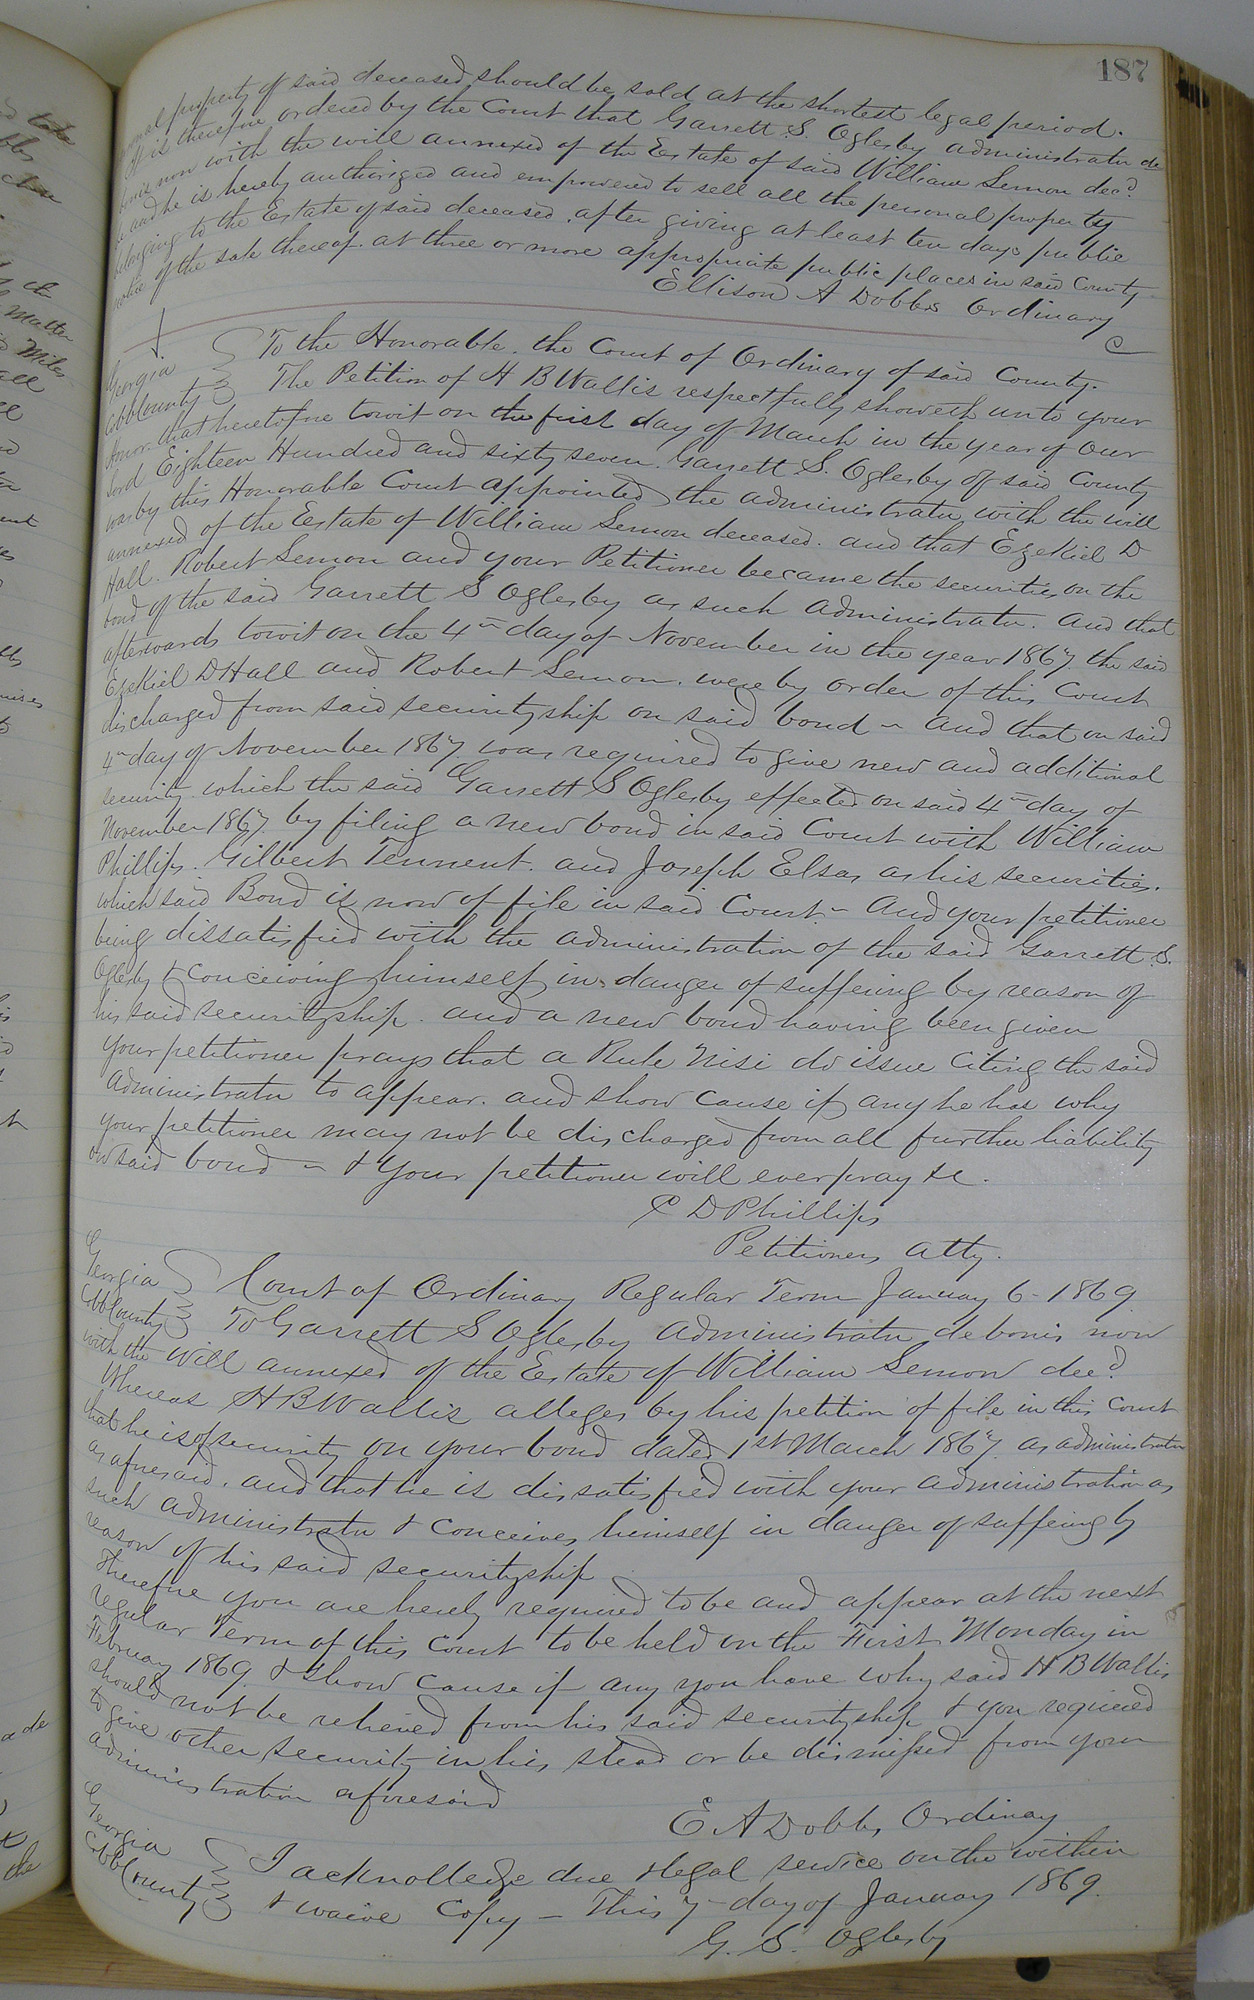 187
property of said deceased should be sold at the shortest legal period.
It is therefore ordered by the Court that Garrett S. Oglesby administrator de
bonis non with the will annexed of the Estate of said William Lemon decd.
be and he is hereby authorized and empowered to sell all the personal property
belonging to the Estate of said deceased, after giving at least ten days public
notice of the sale thereof. at three or more appropriate public places in said County
Ellison A Dobbs Ordinary
Georgia To the Honorable. the Court of Ordinary of said County.
Cobb County The Petition of H B Wallis respectfully showeth unto your
Honor that heretofore towit on the first day of March in the year of Our
Lord Eighteen Hundred and sixty seven. Garrett S. Oglesby of said County
was by this Honorable Court appointed the administrator with the will
annexed of the Estate of William Lemon deceased. and that Ezekiel D
Hall. Robert Lemon and your Petitioner became the securities on the
bond of the said Garrett S Oglesby as such administrator. And that
afterwards towit on the 4th day of November in the year 1867. the said
Ezekiel D Hall and Robert Lemon. were by order of this Court
discharged from said securityship on said bond - and that on said
4th day of November 1867. was required to give new and additional
security which the said Garrett S Oglesby effected on said 4th day of
November 1867. by filing a new bond in said Court with William
Phillips. Gilbert Tennent. and Joseph Elsas as his securities.
which said Bond is now of file in said Court - And your petitioner
being dissatisfied with the administration of the said Garrett S.
Oglesby & conceiving himself in danger of suffering by reason of
his said securityship. and a new bond having been given
your petitioner prays that a Rule Nisi do issue citing the said
administrator to appear. and show cause if any he has why
your petitioner may not be discharged from all further liability
on said bond - & your petitioner will ever pray &c.
C D Phillips
Petitioners Atty.
Georgia Court of Ordinary Regular Term January 6 - 1869
Cobb County To Garrett S Oglesby administrator de bonis non
with the will annexed of the Estate of William Lemon decd.
Whereas H B Wallis alleges by his petition of file in this Court
that he is of security on your bond dated 1st March 1867. as administrator
as aforesaid. and that he is dissatisfied with your administration as
such administrator & conceives himself in danger of suffering by
reason of his said securityship
Therefore you are hereby required to be and appear at the next
regular Term of this Court to be held on the First Monday in
February 1869. & show cause if any you have why said H B Wallis
should not be relieved from his said securityship & you required
to give other security in his stead or be dismissed from your
administration aforesaid
E A Dobbs, Ordinary
Georgia I acknolledge due & legal service on the within
Cobb County & waive Copy - This 7 - day of January 1869.
G. S. Oglesby